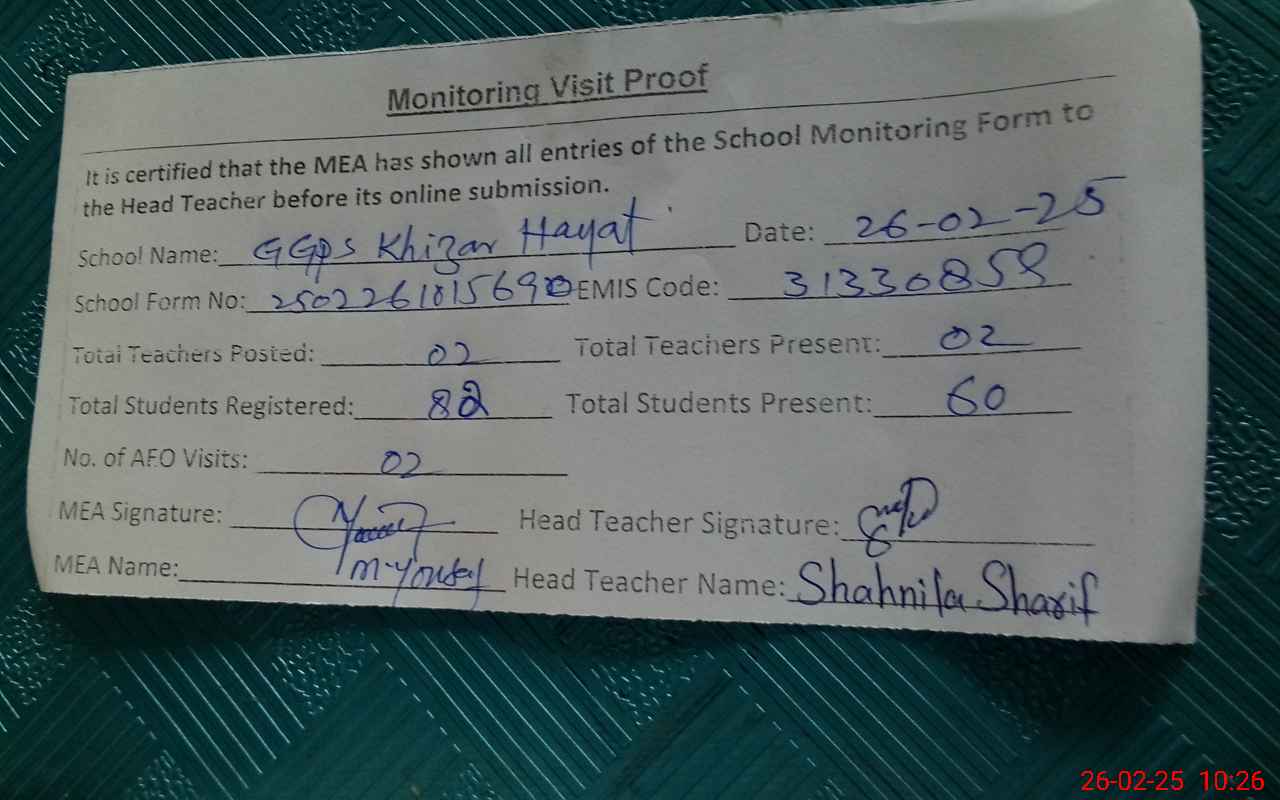 Monitoring Visit Proof
It is certified that the MEA has shown all entries of the School Monitoring Form to
the Head Teacher before its online submission.
School Name: GGPS Khizar Hayat Date: 26-02-25
School Form No: EMIS Code: 31330859
Total Teachers Posted: 02 Total Teachers Present: 02
Total Students Registered: 82 Total Students Present: 60
No. of AEO Visits: 02
MEA Signature: Head Teacher Signature:
MEA Name: M-Yousaf Head Teacher Name: Shahnila Sharif
26-02-25 10:26